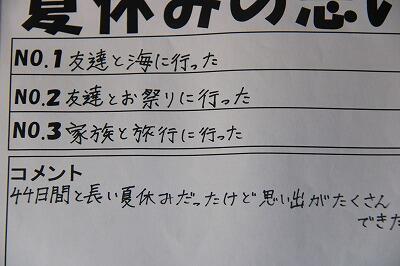 夏休みの思い
NO.1 友達と海に行った
NO.2 友達とお祭りに行った
NO.3 家族と旅行に行った
コメント
44日間と長い夏休みだったけど思い出がたくさん
できた